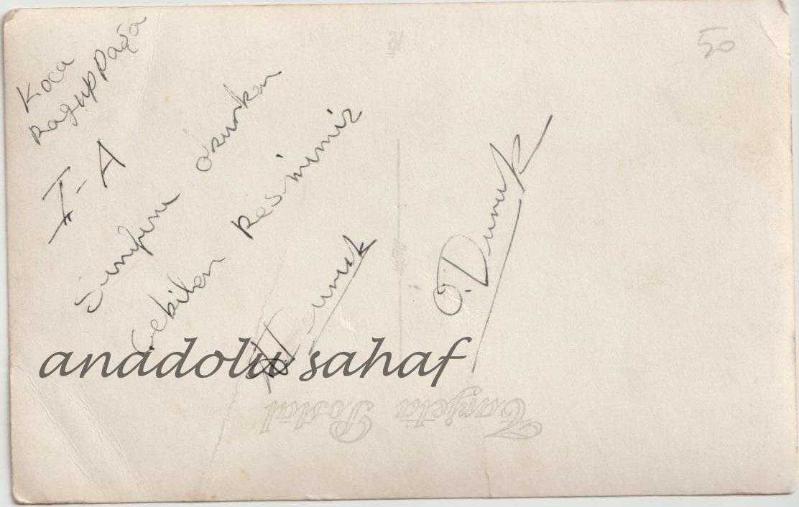 50
Koca
Ragıp Paşa
I-A
Sınıfını okurken
Çekilen Resmimiz
Duruk
O. Duruk
anadolu sahaf
Tarjeta Postal